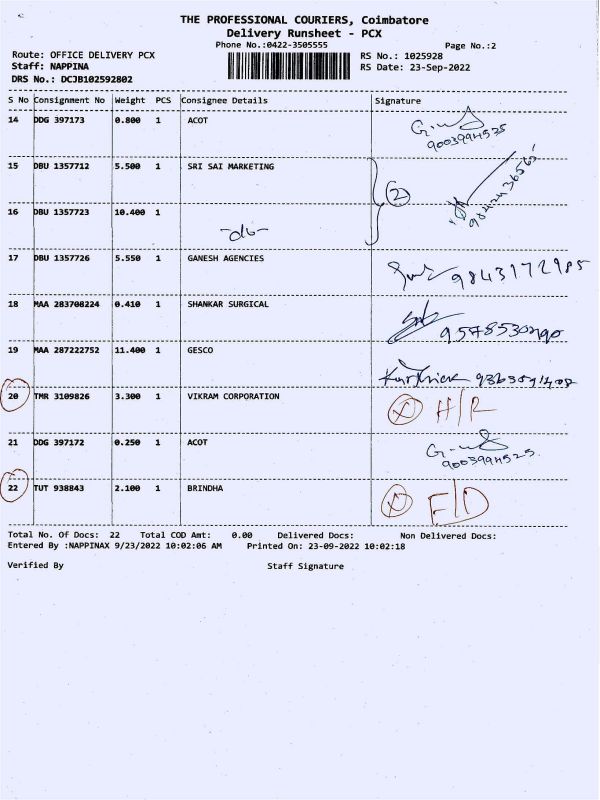 THE PROFESSIONAL COURIERS, Coimbatore
Delivery Runsheet - PCX
Phone No.:0422-3505555 Page No.:2
Route: OFFICE DELIVERY PCX RS No.: 1025928
Staff: NAPPINA RS Date: 23-Sep-2022
DRS No.: DCJB102592802
S No Consignment No Weight PCS Consignee Details Signature
14 DDG 397173 0.800 1 ACOT
9003994525
15 DBU 1357712 5.500 1 SRI SAI MARKETING 2
16 DBU 1357723 10.400 1
-do-
17 DBU 1357726 5.550 1 GANESH AGENCIES
9843172985
18 MAA 283708224 0.410 1 SHANKAR SURGICAL
19 MAA 287222752 11.400 1 GESCO
20 TMR 3109826 3.300 1 VIKRAM CORPORATION X H/R
21 DDG 397172 0.250 1 ACOT
9003994525
22 TUT 938843 2.100 1 BRINDHA X F/D
Total No. Of Docs: 22 Total COD Amt: 0.00 Delivered Docs: Non Delivered Docs:
Entered By :NAPPINAX 9/23/2022 10:02:06 AM Printed On: 23-09-2022 10:02:18
Verified By Staff Signature